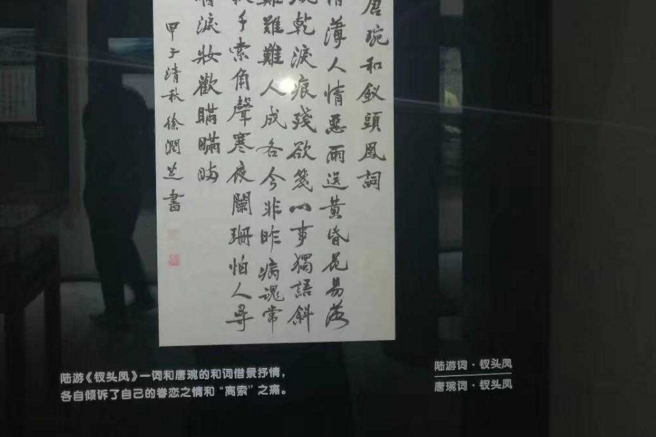 唐琬和釵頭鳳詞
情薄人情惡雨送黃昏花易落
乾淚痕殘欲箋心事獨語斜
難難難人成各今非昨病魂常
千索角聲寒夜闌珊怕人尋
淚妝歡瞞瞞瞞
甲子清秋徐潤芝書
陆游《钗头凤》一词和唐琬的和词借景抒情，
各自倾诉了自己的眷恋之情和“离索”之痛。
陆游词·钗头凤
唐琬词·钗头凤